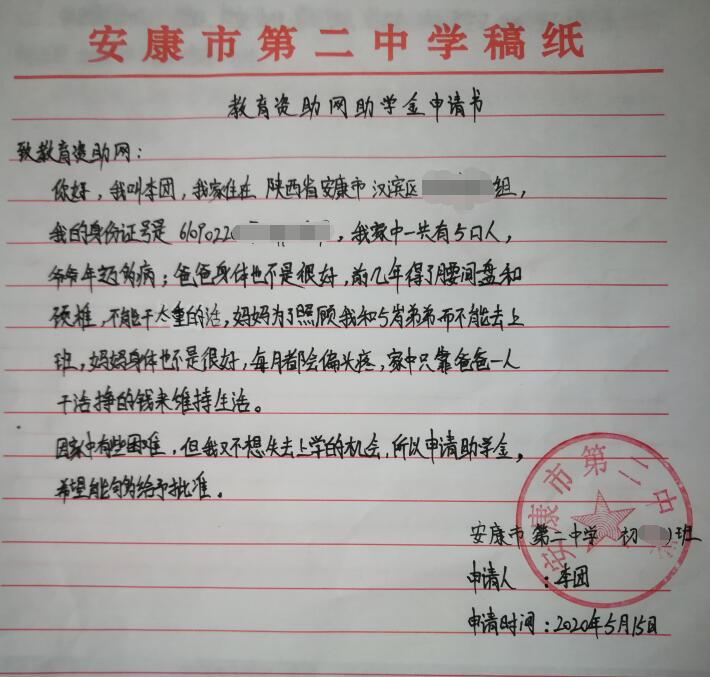 安康市第二中学稿纸
教育资助网助学金申请书
致教育资助网：
你好，我叫李团，我家住在 陕西省安康市 汉滨区 组，
我的身份证号是 6109022 ，我家中一共有5口人，
爷爷年迈多病；爸爸身体也不是很好，前几年得了腰间盘和
颈椎，不能干太重的活，妈妈为了照顾我和5岁弟弟而不能去上
班，妈妈身体也不是很好，每月都会偏头疼，家中只靠爸爸一人
干活挣的钱来维持生活。
因家中有些困难，但我又不想失去上学的机会，所以申请助学金，
希望能够给予批准。
安康市第二中
安康市 第二中学 初 )班
申请人 ：李团
申请时间：2020年5月15日